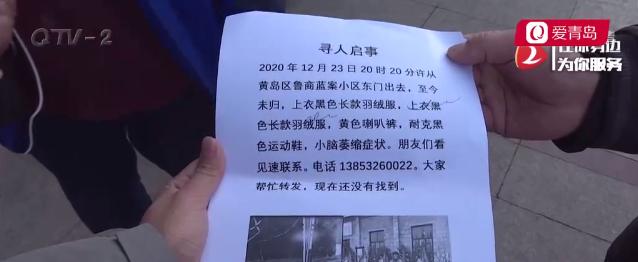 QTV-2
爱青岛
2
在你身边
为你服务
寻人启事
2020年12月23日20时20分许从
黄岛区鲁商蓝案小区东门出去，至今
未归，上衣黑色长款羽绒服，上衣黑
色长款羽绒服，黄色喇叭裤，耐克黑
色运动鞋，小脑萎缩症状。朋友们看
见速联系。电话13853260022。大家
帮忙转发，现在还没有找到。